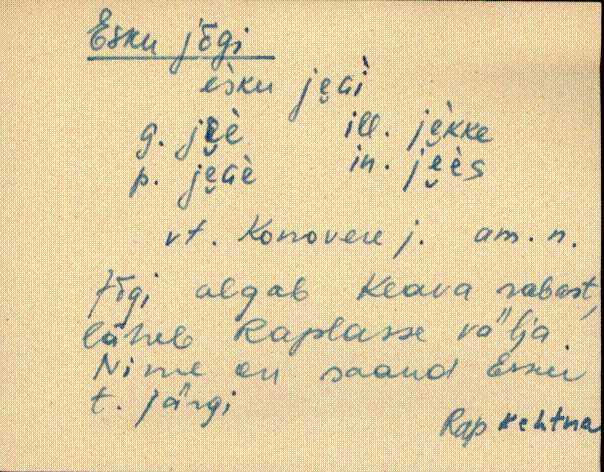 Esku jõgi
èsku je̮Gì
g. je̮è ill. jè̮kke
p. je̮Gè in. je̮ès
vt. Konovere j. am. n.
Jõgi algab Keava rabast,
läheb Raplasse välja
Nime on saand Esku
t. järgi
Rap Kehtna